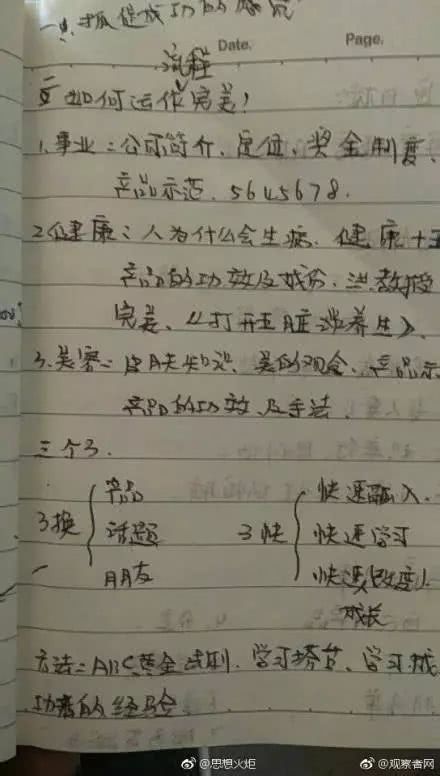 Date. Page.
流程
如何运作完美!
1.事业:公司简介、定位、奖金制度、
产品示范、5645678.
2.健康:人为什么会生病、健康十
产品的功效及成份、洪教授
完美、《打开五脏谈养生》、
3.美容:皮肤知识、美的观念、产品示
产品的功效及手法
三个3.
3换 产品 话题 朋友
3快 快速融入. 快速学习 快速改变、
成长
方法:ABC黄金法则、学习榜样、学习成
功者的经验
@思想火炬 @观察者网